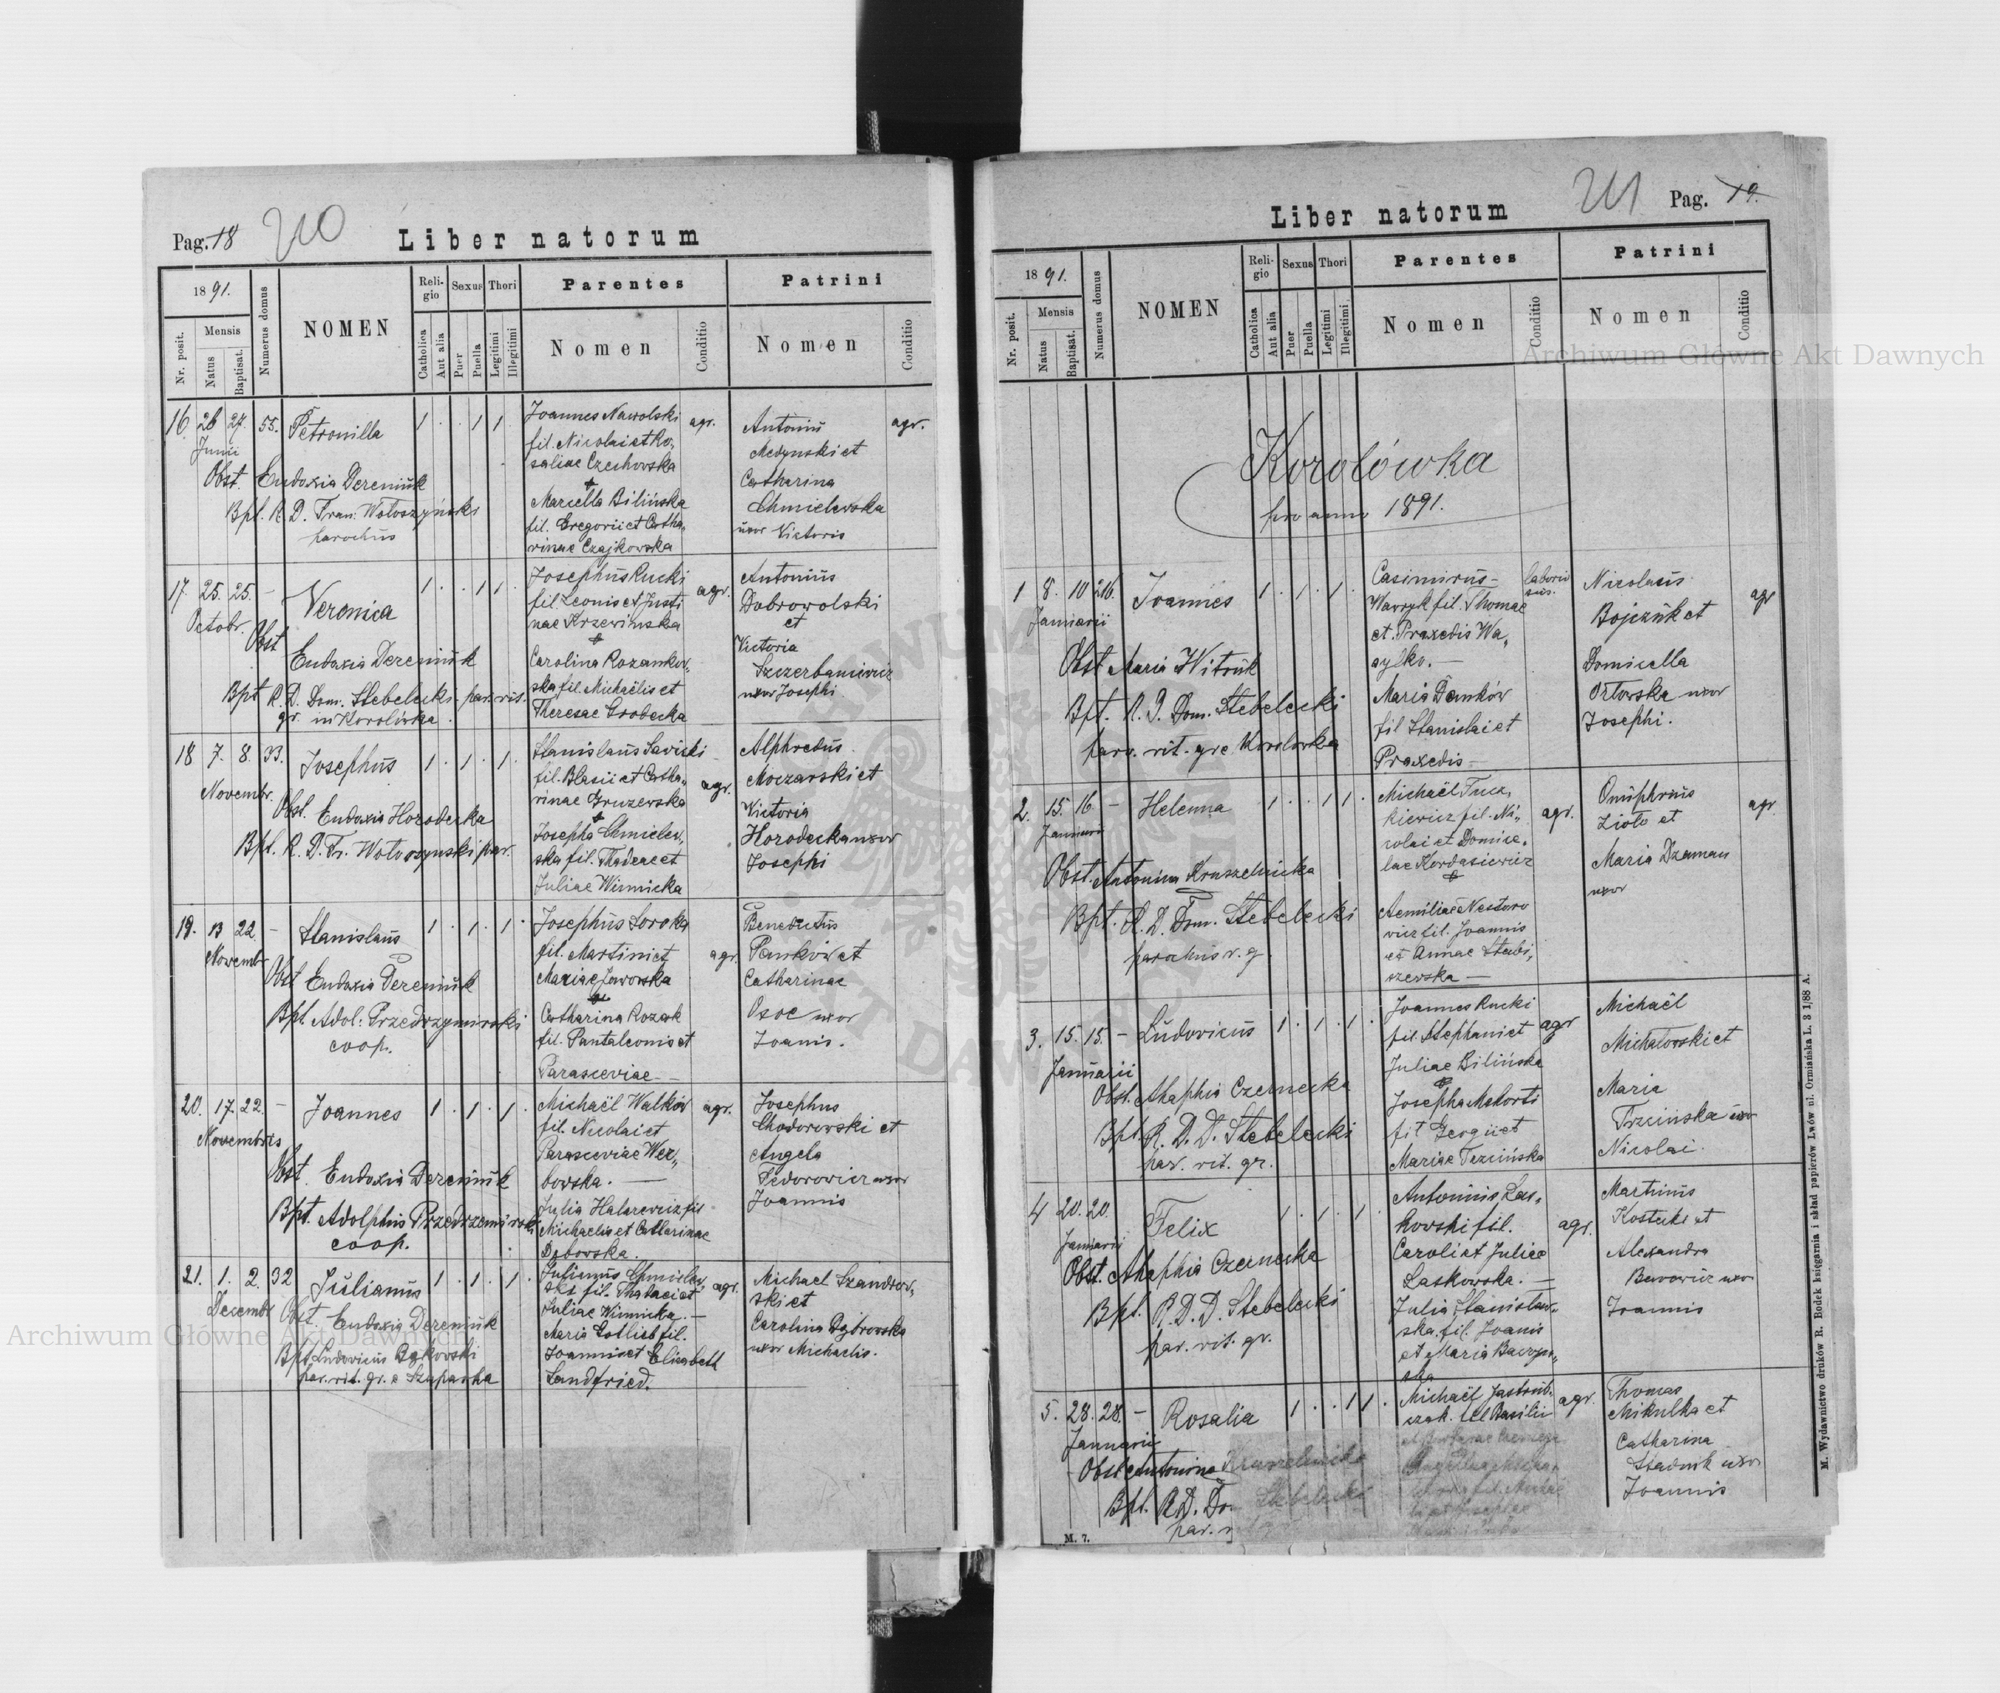 Pag. 18
210
Liber natorum
1891.
Nr. posit.
Mensis
Natus
Baptisat.
Numerus domus
NOMEN
Religio
Catholica
Aut alia
Sexus
Puer
Puella
Thori
Legitimi
Illegitimi
Parentes
Nomen
Conditio
Patrini
Nomen
Conditio
16. 26 27. 55. Petronilla 1 . . 1 1 .
Junii
Obst. Eudoxia Dereniuk
Bpt. R. D. Fran. Wołoszyński
parochus
Joannes Nawolski
fil. Nicolai et Ro-
saliae Czechowska
+
Marcella Bilińska
fil. Gregorii et Catha-
rinae Czajkowska
agr.
Antoniŭs
Medynski et
Catharina
Chmielewska
uxor Victoris
agr.
17. 25. 25. - Veronica 1 . . 1 1 .
Octobr.
Obst
Eudoxia Dereniuk
Bpt R. D. Dom. Stebelecki par. rit.
gr. in Korolówka.
Josephus Rucki
fil. Leonis et Justi
nae Krzewinska
+
Carolina Rozankow-
ska fil. Michaëlis et
Theresae Grobecka
agr.
Antoniŭs
Dobrowolski
et
Victoria
Szczerbaniewicz
uxor Josephi
18 7. 8. 33. Josephŭs 1 . 1 . 1 .
Novembr.
Obst. Eudoxia Horodecka
Bpt. R. D. Fr. Wołoszynski par.
Stanislaus Saviski
fil. Blasii et Catha-
rinae Gruzewska
+
Josepha Chmielew-
ska fil. Thadeae et
Juliae Winnicka
agr.
Alphredŭs
Moczarski et
Victoria
Horodecka uxor
Josephi
19. 13 22. - Stanislaŭs 1 . 1 . 1 .
Novembr
Obst Eudoxia Dereniuk
Bpt. Adol. Przedrzymirski
coop.
Josephŭs Soroka
fil. Martini et
Mariae Jaworska
+
Catharina Rozak
fil. Pantaleonis et
Parasceviae
agr.
Benedictŭs
Pankow et
Catharinae
Osoc uxor
Joanis.
20. 17. 22. - Joannes 1 . 1 . 1 .
Novembris
Obst. Eudoxia Dereniuk
Bpt. Adolphŭs Przedrzemirski
coop.
Michaël Walków
fil. Nicolai et
Parasceviae Wer-
bowska.
Julia Halarewicz fil
Michaelis et Catharinae
Dąbowska.
agr.
Josephus
Chodorowski et
Angela
Fedorowicz uxor
Joannis
21. 1. 2. 32 Jŭlianŭs 1 . 1 . 1 .
Decembr
Obst. Eudoxia Dereniuk
Bpt. Ludovicus Bąkowski
par. rit. gr. e Szuparka
Julianŭs Chmielew-
ski fil. Thadaei et
Juliae Winnicka.
Maria Gotlieb fil.
Joannis et Elisabeth
Landfried.
agr.
Michael Szandrow-
ski et
Carolina Dąbrowska
uxor Michaelis.
Liber natorum
211
Pag. 19.
1891.
Nr. posit.
Mensis
Natus
Baptisat.
Numerus domus
NOMEN
Religio
Catholica
Aut alia
Sexus
Puer
Puella
Thori
Legitimi
Illegitimi
Parentes
Nomen
Conditio
Patrini
Nomen
Conditio
Korolówka
pro anno 1891.
1 8. 10 216. Joannes 1 . 1 . 1 .
Januarii
Obst Maria Witoŭk
Bpt. R. D. Dom. Stebelecki
paro. rit. gre Korolowka
Casimirŭs
Wawryk fil. Thomae
et Praxedis Wa-
sylko.
Maria Demków
fil Stanislai et
Praxedis
laborio
sus.
Nicolaŭs
Bojczŭk et
Domicella
Ortowska uxor
Josephi.
agr
2. 15. 16 - Helenna 1 . . 1 1 .
Januarii
Obst. Antonina Kruszelnicka
Bpt. R. D. Dom. Stebelecki
parochus r. g.
Michaël Tucz-
kiewicz fil. Ni-
colai et Domice-
lae Kordasiewicz
+
Aemiliae Nestoro
wicz fil. Joannis
et Annae Stebi-
szewska
agr.
Onŭphrius
Zioło et
Maria Dzaman
uxor
agr.
3. 15. 15. - Lŭdovicŭs 1 . 1 . 1 .
Janŭarii
Obst. Ahaphia Czernecka
Bpt. R. D. D. Stebelecki
par. rit. gr.
Joannes Rucki
fil. Stephani et
Juliae Bilińska
Josepha Mekorti
fil Georgii et
Mariae Trzcińska
agr
Michaël
Michałowski et
Maria
Trzcinska uxor
Nicolai
4 20. 20. Felix 1 . 1 . 1 .
Januarii
Obst. Ahaphia Czernecka
Bpt. R. D. D. Stebelecki
par. rit. gr.
Antonius Las-
kowski fil.
Caroli et Juliae
Laskowska.
Julia Stanislaw-
ska. fil. Joanis
et Maria Baczyn-
ska
agr.
Martinŭs
Kostecki et
Alexandra
Bawowicz uxor
Joannis
5. 28. 28. - Rosalia 1 . . 1 1 .
Januarii
Obst. Antonina Kruszelnicka
Bpt. R. D. Do. Stebelecki
par. r
Michaël Jastrŭb-
czak. fil Basilii
agr.
Thomas
Mikulka et
Catharina
Stadnik uxor
Joannis
M. 7.
M. Wydawnictwo druków R. Bodek księgarnia i skład papierów Lwów ul. Ormiańska L. 3 1/88 A.
Archiwum Główne Akt Dawnych
Archiwum Główne Akt Dawnych